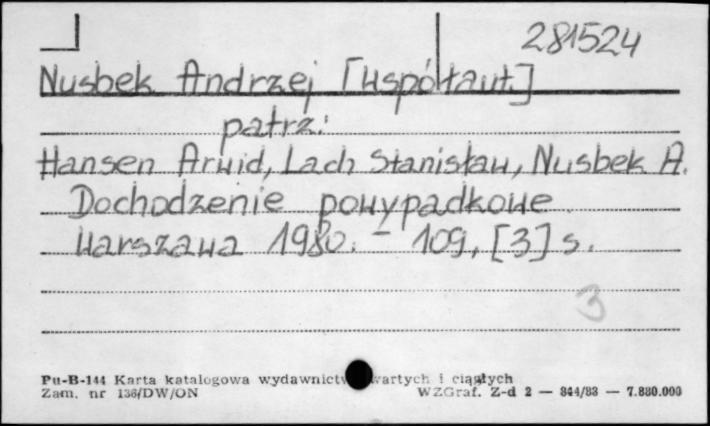 281524
Nusbek Andrzej [współaut.]
patrz:
Hansen Arwid, Lach Stanisław, Nusbek A.
Dochodzenie powypadkowe
Warszawa 1980. - 109, [3] s.
3
Pu-B-144 Karta katalogowa wydawnictw zwartych i ciągłych
Zam. nr 136/DW/ON WZGraf. Z-d 2 — 844/83 — 7.880.000